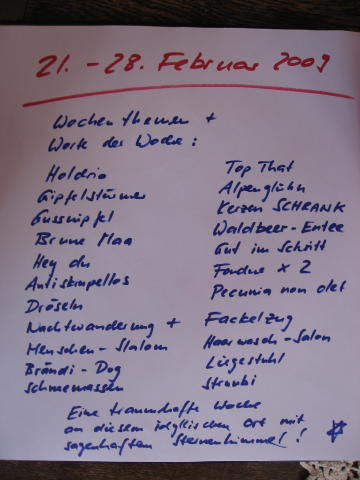 21. - 28. Februar 2009
Wochenthemen +
Worte der Woche:
Holdrio
Gipfelstürmer
Gussnipfel
Brune Maa
Hey du
Antiskrupellos
Dröseln
Nachtwanderung +
Menschen-Slalom
Brändi-Dog
Schneemassen
Top That
Alpenglühn
Kerzen SCHRANK
Waldbeer-Entee
Gut im Schritt
Fondue x 2
Pecunia non olet
Fackelzug
Haarwasch-Salon
Liegestuhl
Strubi
Eine traumhafte Woche
an diesem idyllischen Ort mit
sagenhaftem Sternenhimmel!